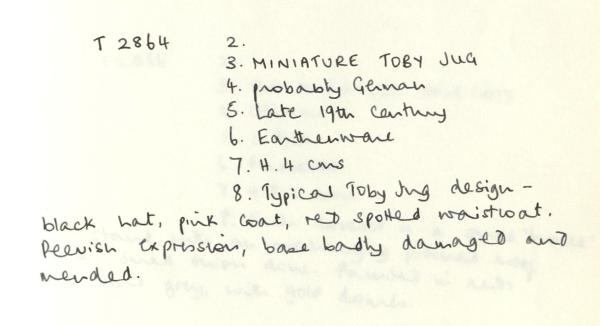 T 2864 2.
3. MINIATURE TOBY JUG
4. probably German
5. Late 19th Century
6. Earthenware
7. H. 4 cms
8. Typical Toby Jug design -
black hat, pink coat, red spotted waistcoat.
Peevish expression, base badly damaged and
mended.